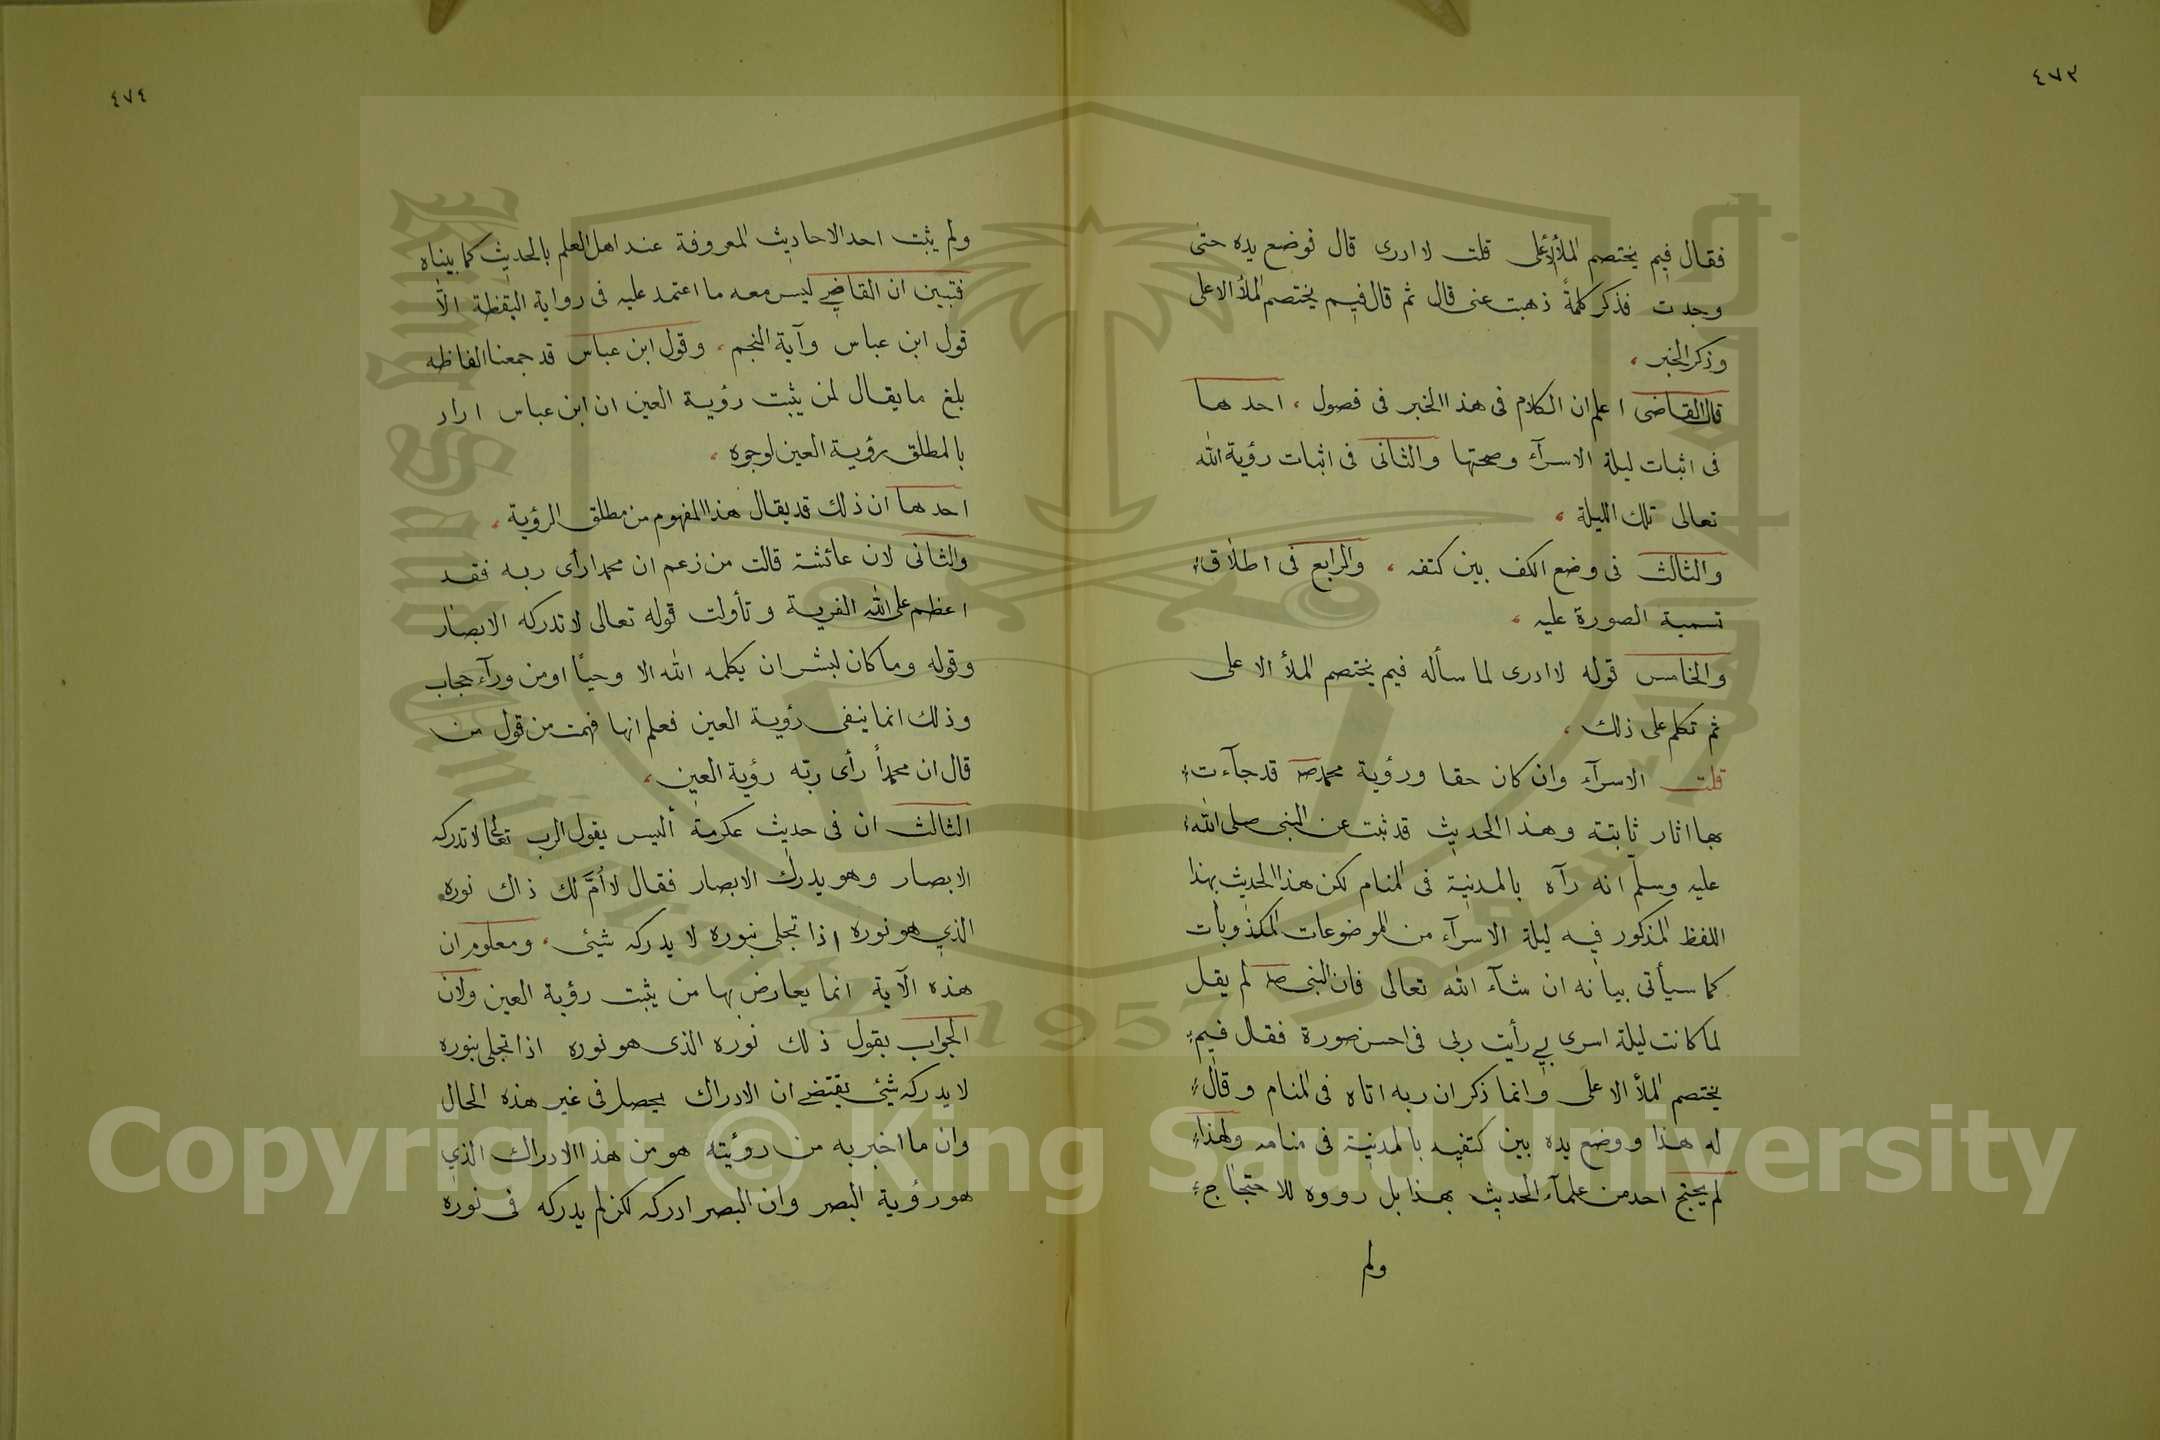 ٤٧٣
فقال فيم يختصم الملأ الأعلى قلت لا ادرى قال فوضع يده حتى
وجدت فذكر كلمةً ذهبت عنى قال ثم قال فيم يختصم الملأ الاعلى
وذكر الخبر
قال القاضى اعلم ان الكلام فى هذا الخبر فى فصول احدها
فى اثبات ليلة الاسرآء وصحتها والثانى فى اثبات رؤية الله
تعالى تلك الليلة
والثالث فى وضع الكف بين كتفه والرابع فى اطلاق
تسمية الصورة عليه
والخامس قوله لا ادرى لما سأله فيم يختصم الملأ الاعلى
ثم تكلم على ذلك
قلت الاسرآء وان كان حقا ورؤية محمد صم قد جآءت
بها اثار ثابتة وهذا الحديث قد ثبت عن النبى صلى الله
عليه وسلّم انه رآه بالمدينة فى المنام لكن هذا الحديث بهذا
اللفظ المذكور فيه ليلة الاسرآء من الموضوعات المكذوبات
كما سيأتى بيانه ان شآء الله تعالى فان النبى صم لم يقل
لما كانت ليلة اسرى بى رأيت ربى فى احسن صورة فقال فيم
يختصم الملأ الاعلى وانما ذكر ان ربه اتاه فى المنام وقال
له هذا ووضع يده بين كتفيه بالمدينة فى منامه ولهذا
لم يحتج احد من علمآء الحديث بهذا بل رووه للاحتجاج
ولم
٤٧٤
ولم يثبت احد الاحاديث المعروفة عند اهل العلم بالحديث كما بيناه
فتبين ان القاضى ليس معه ما اعتمد عليه فى رواية اليقظة الاّ
قول ابن عباس وآية النجم وقول ابن عباس قد جمعنا الفاظه
بلغ ما يقال لمن يثبت رؤية العين ان ابن عباس اراد
بالمطلق رؤية العين لوجوه
احدها ان ذلك قد يقال هذا المفهوم من مطلق الرؤية
والثانى لان عائشة قالت من زعم ان محمدا رأى ربه فقد
اعظم على الله الفرية وتأولت قوله تعالى لا تدركه الابصار
وقوله وما كان لبشر ان يكلمه الله الا وحيًا او من ورآء حجاب
وذلك انما ينفى رؤية العين فعلم انها فهمت من قول من
قال ان محمداً رأى ربّه رؤية العين
الثالث ان فى حديث عكرمة أليس يقول الرب تعالى لا تدركه
الابصار وهو يدرك الابصار فقال لا أمَّ لك ذاك نوره
الذى هو نوره اذا تجلى بنوره لا يدركه شيئ ومعلوم ان
هذه الآية انما يعارض بها من يثبت رؤية العين ولان
الجواب بقول ذلك نوره الذى هو نوره اذا تجلى بنوره
لا يدركه شيئ يقتضى ان الادراك يحصل فى غير هذه الحال
وان ما اخبر به من رؤيته هو من هذا الادراك الذى
هو رؤية البصر وان البصر ادركه لكن لم يدركه فى نوره
Copyright © King Saud University
King Saud University
1957